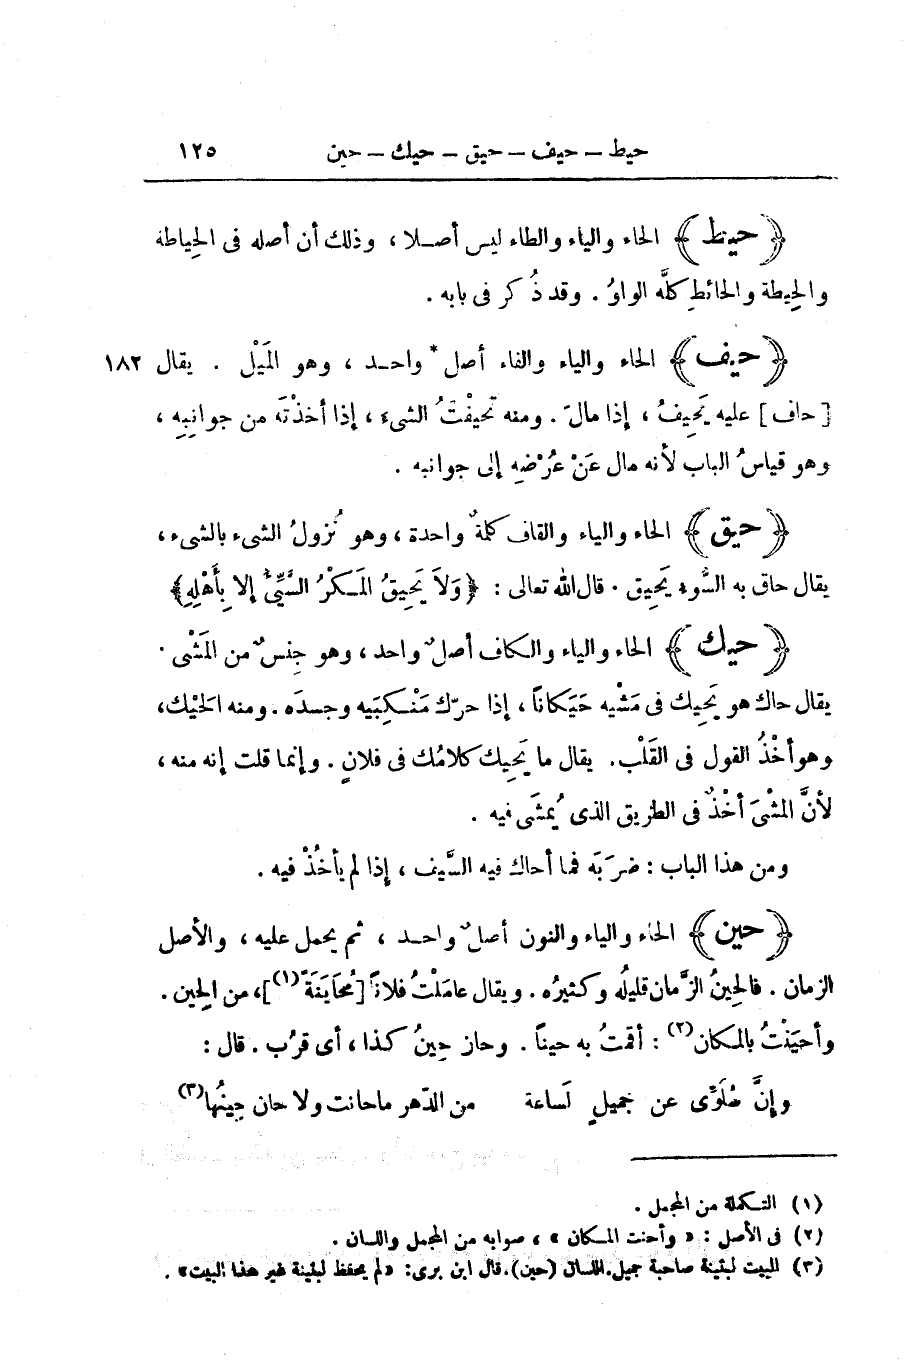 حيط – حيف – حيق – حيك – حين ١٢٥
﴿حيط﴾ الحاء والياء والطاء ليس أصلا ، وذلك أن أصله فى الحِياطة
والحِيطة والحائطِ كلَّه الواوُ . وقد ذُكر فى بابه .
﴿حيف﴾ الحاء والياء والفاء أصل* واحد ، وهو المَيْل . يقال ١٨٢
[حاف] عليه يَحِيفُ ، إذا مالَ . ومنه تحيفْتُ الشىء ، إذا أخذْتَه من جوانِبِه ،
وهو قياسُ الباب لأنه مال عَنْ عُرْضِه إلى جوانبه .
﴿حيق﴾ الحاء والياء والقاف كلمةٌ واحدة ، وهو نُزولُ الشىء بالشىء ،
يقال حاق به السُّوء يَحِيق . قال الله تعالى : ﴿وَلاَ يَحِيقُ المَكْرُ السَّيِّئُ إلا بِأَهْلِهِ﴾
﴿حيك﴾ الحاء والياء والكاف أصلٌ واحد ، وهو جِنسٌ من المَشْى .
يقال حاك هو يَحِيك فى مَشْيه حَيَكاناً ، إذا حرّك مَنْكِبَيه وجسدَه . ومنه الحَيْك ،
وهو أخْذُ القول فى القَلْب . يقال ما يَحِيك كلامُك فى فلانٍ . وإنما قلت إنه منه ،
لأنَّ المشْىَ أخْذٌ فى الطريق الذى يُمشَى فيه .
ومن هذا الباب : ضرَبَه فما أحاك فيه السَّيف ، إذا لم يأخُذْ فيه .
﴿حين﴾ الحاء والياء والنون أصلٌ واحد ، ثم يحمل عليه ، والأصل
الزمان . فالحِينُ الزَّمان قليلُه وكثيرُه . ويقال عامَلْتُ فلاناً [مُحَايَنَةً(١)] ، من الحِين .
وأحيَنْتُ بالمكان(٢) : أقمتُ به حيناً . وحاز حِينُ كذا ، أى قرُب . قال :
وإنَّ سُلُوِّى عن جميلٍ لَساعة من الدّهر ماحانت ولا حان حِينُها(٣)
(١) التكملة من المجمل .
(٢) فى الأصل : « وأحنت المكان » ، صوابه من المجمل واللسان .
(٣) البيت لبثينة صاحبة جميل . اللسان (حين) . قال ابن برى : «لم يحفظ لبثينة غير هذا البيت» .